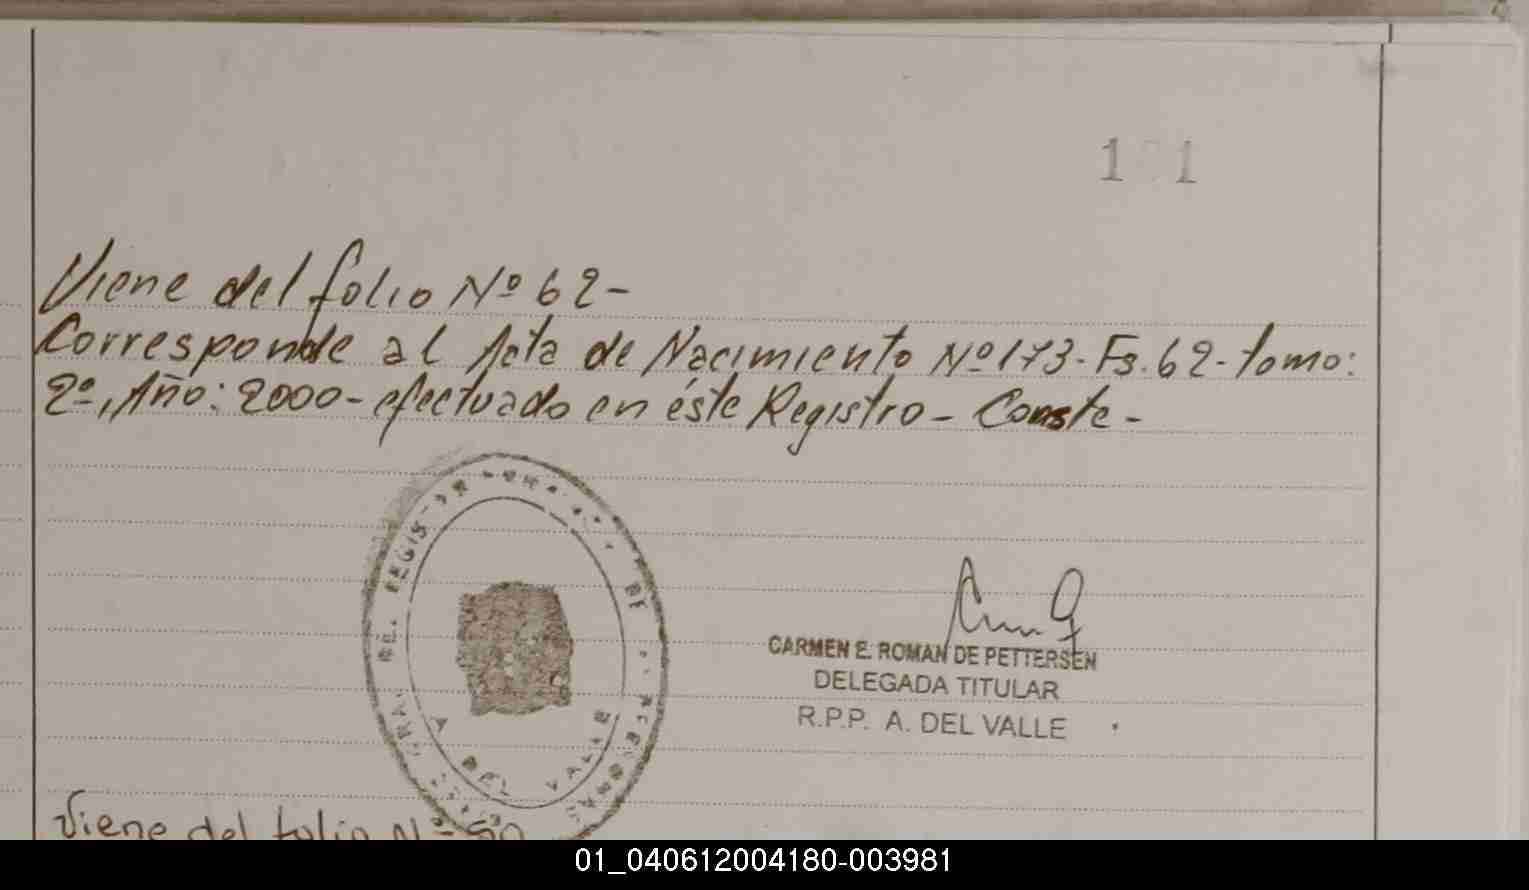 1 1
Viene del folio Nº 62-
Corresponde al Acta de Nacimiento Nº 173- Fs. 62- tomo:
2º, Año: 2000- efectuado en éste Registro- Conste-
CARMEN E. ROMAN DE PETTERSEN
DELEGADA TITULAR
R.P.P. A. DEL VALLE
Viene del folio Nº
01_040612004180-003981